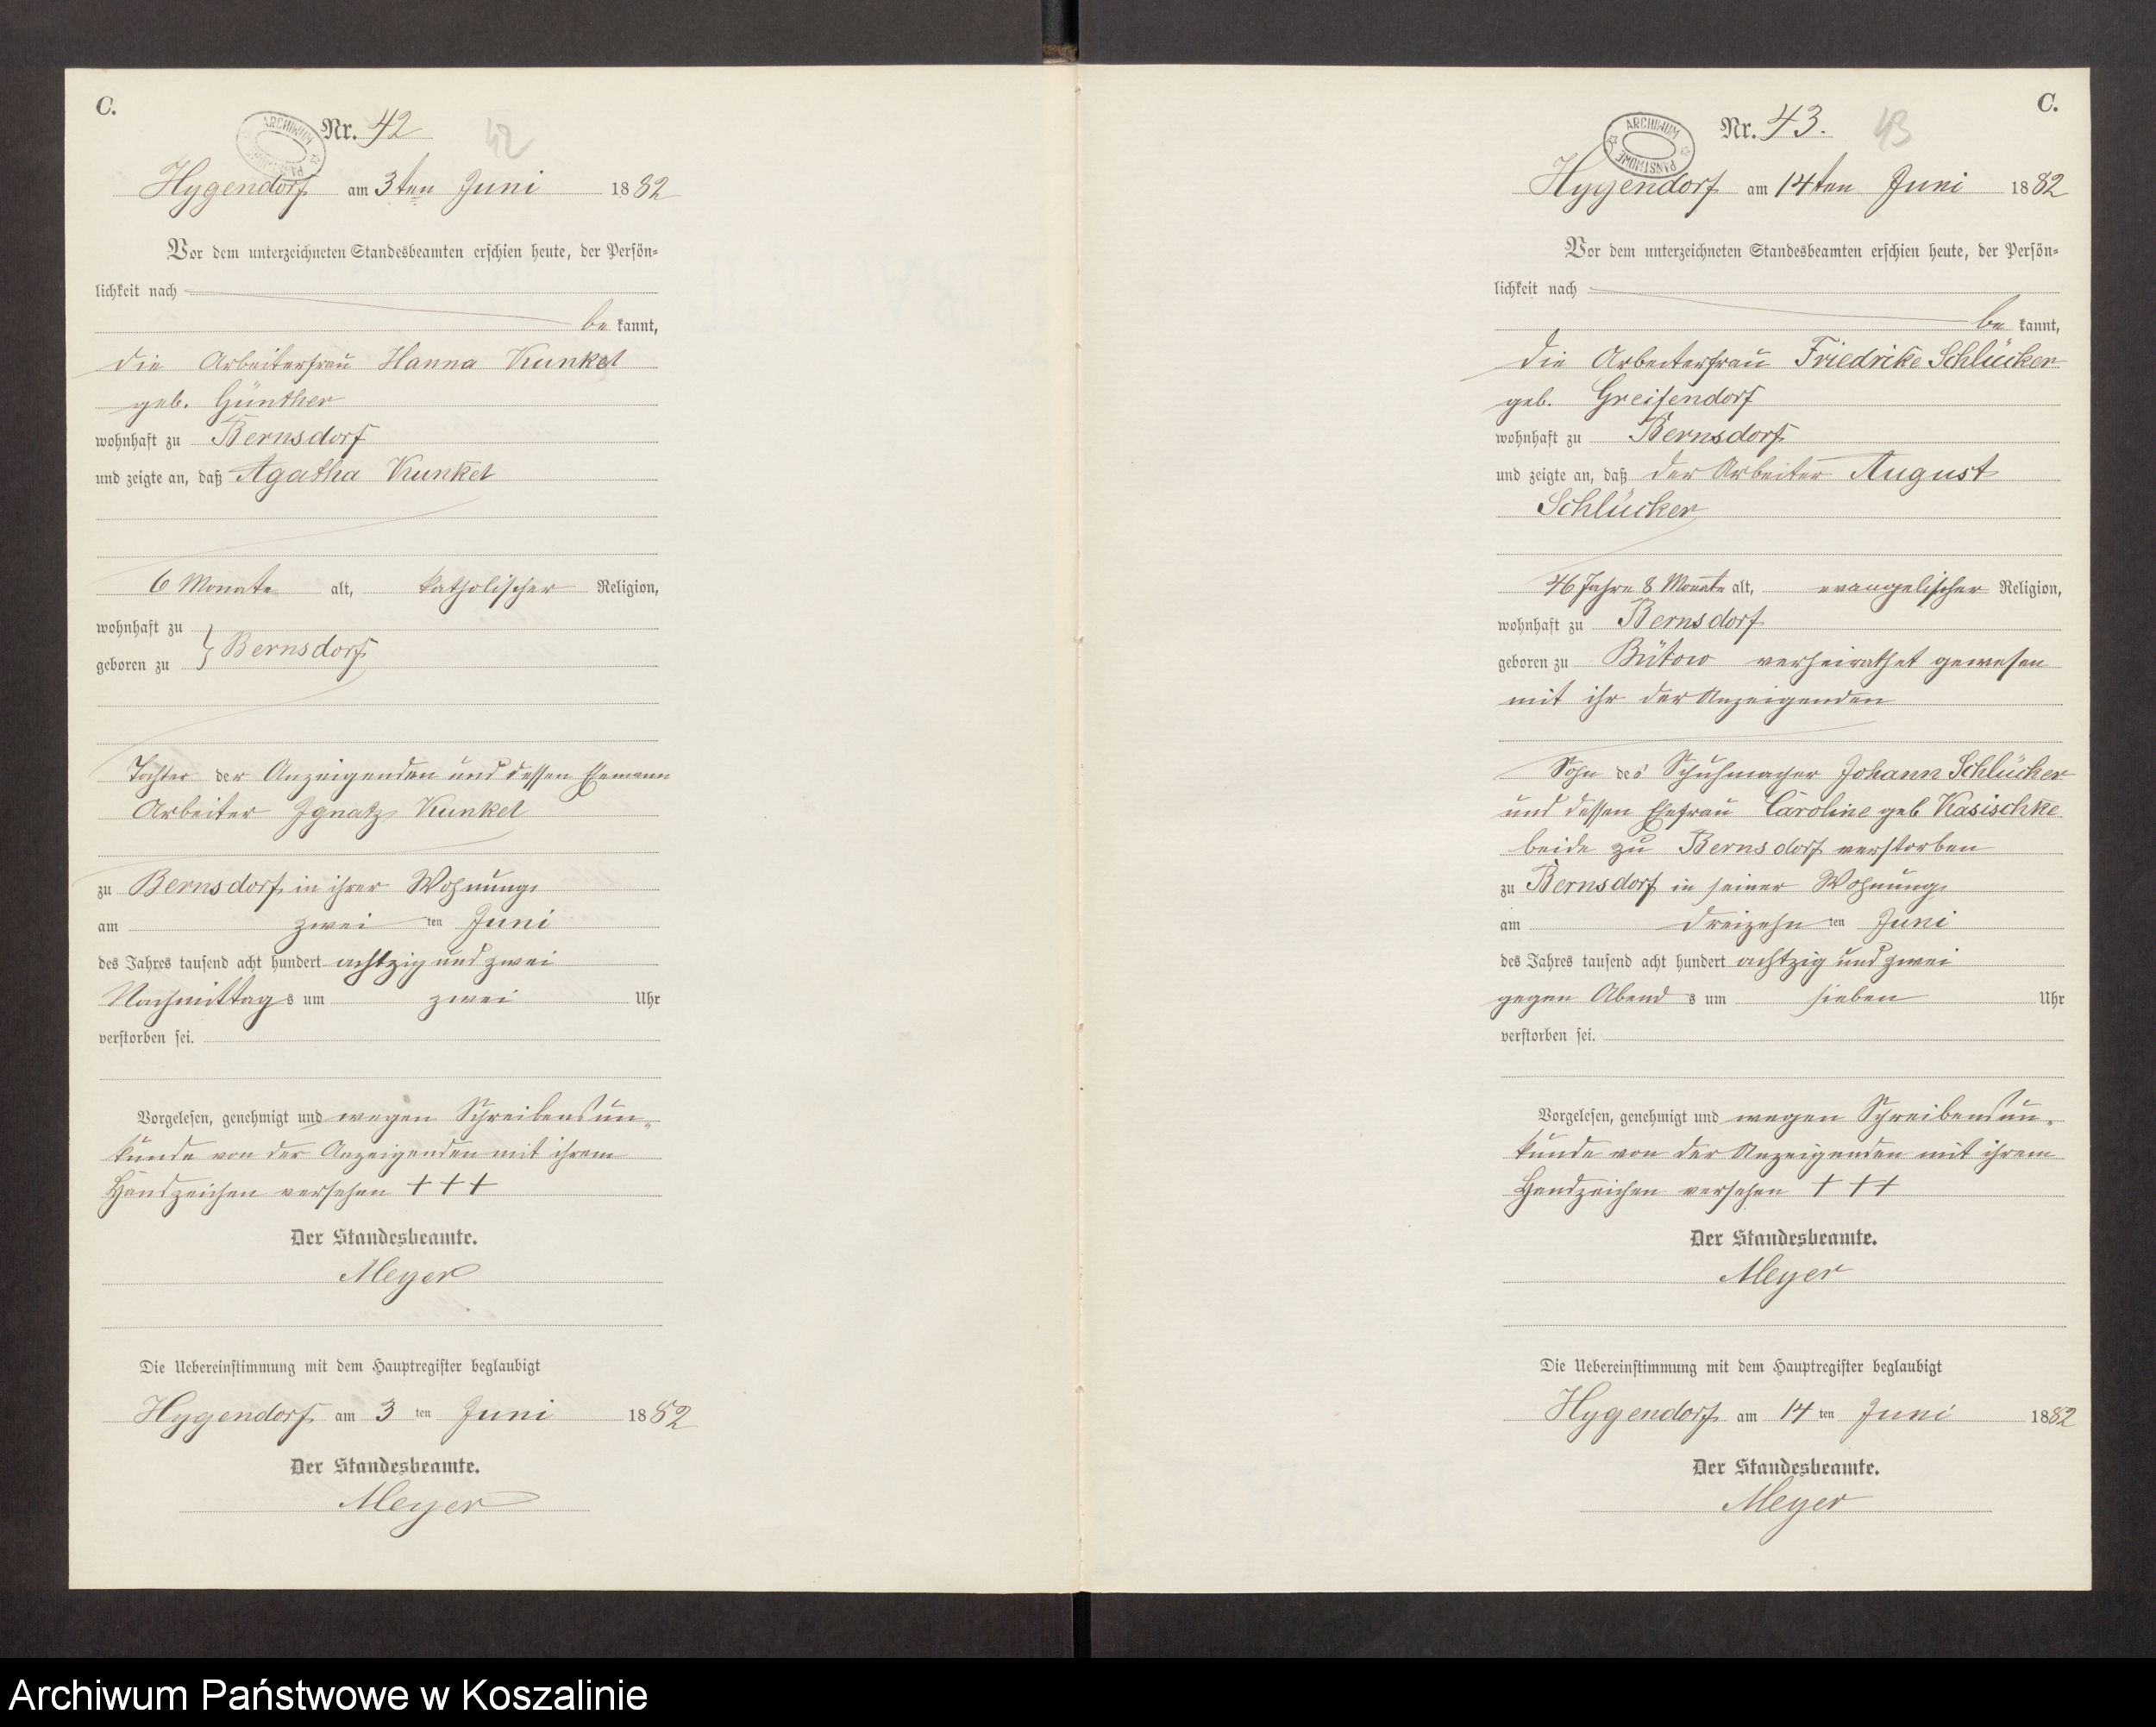 C.
Nr. 42
42
ARCHIWUM PAŃSTWOWE
Hygendorf am 3ten Juni 1882
Vor dem unterzeichneten Standesbeamten erschien heute, der Persön=
lichkeit nach
be kannt,
die Arbeiterfrau Hanna Kunkel
geb. Günther
wohnhaft zu Bernsdorf
und zeigte an, daß Agatha Kunkel
6 Monate alt, katholischer Religion,
wohnhaft zu
geboren zu } Bernsdorf
Tochter der Anzeigenden und dessen Ehemann
Arbeiter Ignatz Kunkel
zu Bernsdorf in ihrer Wohnung
am zwei ten Juni
des Jahres tausend acht hundert achtzig und zwei
Nachmittag s um zwei Uhr
verstorben sei.
Vorgelesen, genehmigt und wegen Schreibensun„
kunde von der Anzeigenden mit ihrem
Handzeichen versehen +++
Der Standesbeamte.
Meyer
Die Uebereinstimmung mit dem Hauptregister beglaubigt
Hygendorf am 3 ten Juni 1882
Der Standesbeamte.
Meyer
C.
Nr. 43.
43
ARCHIWUM PAŃSTWOWE
Hygendorf am 14ten Juni 1882
Vor dem unterzeichneten Standesbeamten erschien heute, der Persön=
lichkeit nach
be kannt,
die Arbeiterfrau Friedrike Schlücker
geb. Greifendorf
wohnhaft zu Bernsdorf
und zeigte an, daß der Arbeiter August
Schlücker
46 Jahre 8 Monate alt, evangelischer Religion,
wohnhaft zu Bernsdorf
geboren zu Bütow verheirathet gewesen
mit ihr der Anzeigenden
Sohn des Schuhmacher Johann Schlücker
und dessen Ehefrau Caroline geb Kasischke
beide zu Bernsdorf verstorben
zu Bernsdorf in seiner Wohnung
am dreizehn ten Juni
des Jahres tausend acht hundert achtzig und zwei
gegen Abend s um sieben Uhr
verstorben sei.
Vorgelesen, genehmigt und wegen Schreibensun„
kunde von der Anzeigenden mit ihrem
Handzeichen versehen +++
Der Standesbeamte.
Meyer
Die Uebereinstimmung mit dem Hauptregister beglaubigt
Hygendorf am 14 ten Juni 1882
Der Standesbeamte.
Meyer
Archiwum Państwowe w Koszalinie